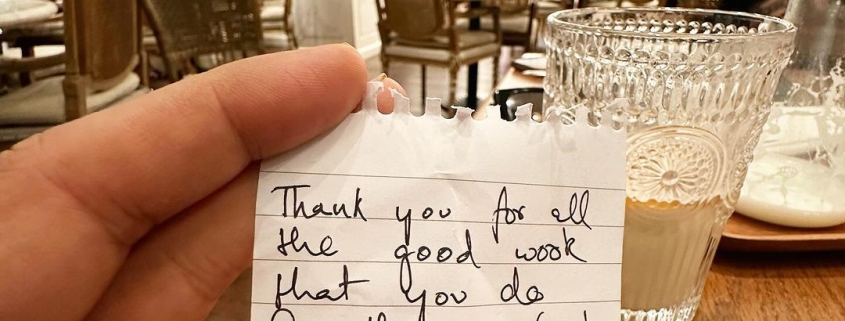 Thank you for all
the good work
that you do